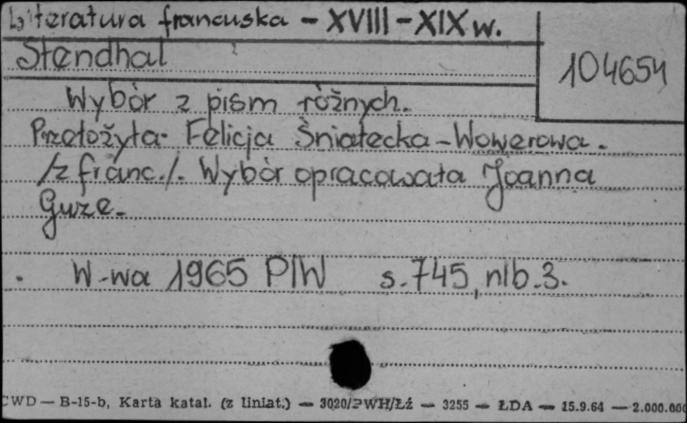 Literatura francuska - XVIII - XIX w.
Stendhal
104654
Wybór z pism różnych.
Przełożyła: Felicja Śniatecka-Wowerowa.
/z franc./. Wybór opracowała Joanna
Guze.
W-wa 1965 PIW s. 745, nlb. 3.
CWD — B-15-b, Karta katal. (z liniat.) — 3020/PWH/Łź — 3255 — ŁDA — 15.9.64 — 2.000.000